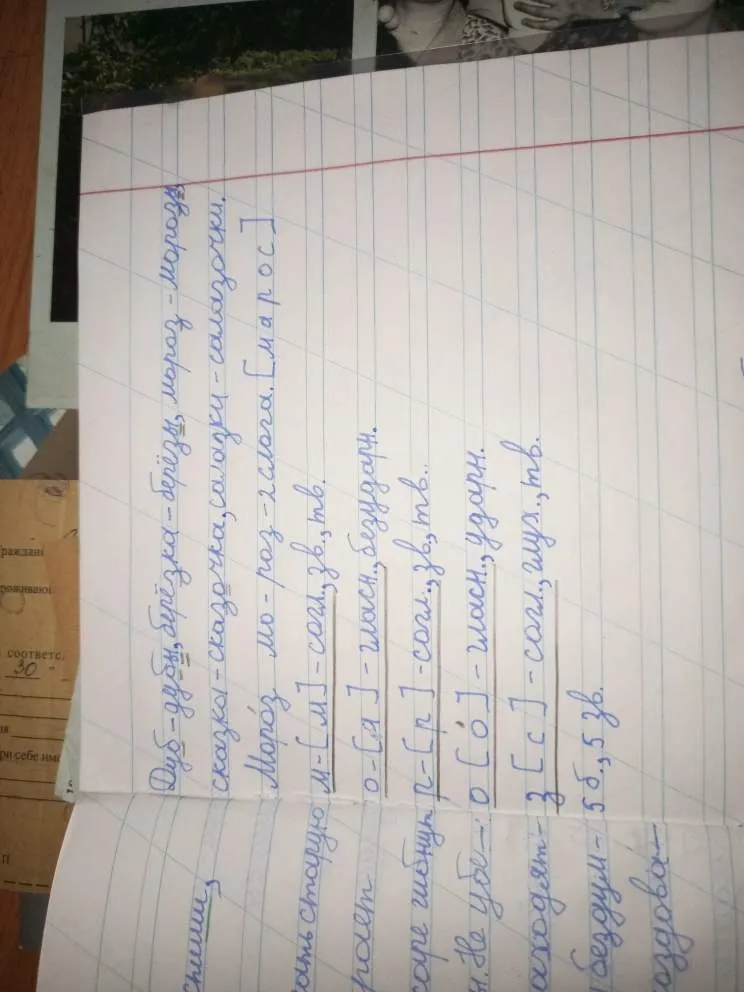 Дуб-дубы, берёзка-берёзы, мороз-морозы
сказка-сказочка, салазки-салазочки.
Мороз мо-роз-2 слога. [марос]
м-[м]-согл., зв., тв.
о-[а]-гласн., безударн.
р-[р]-согл., зв., тв..
о [о́]-гласн., ударн.
з [с]-согл., глух., тв.
5 б., 5 зв.
спиши,
ать старую
ролет
соре гибнут
н. Не убе-
аходят-
бездум-
оздова-
Граждани
роживаю
соответс.
30
ри себе име
П